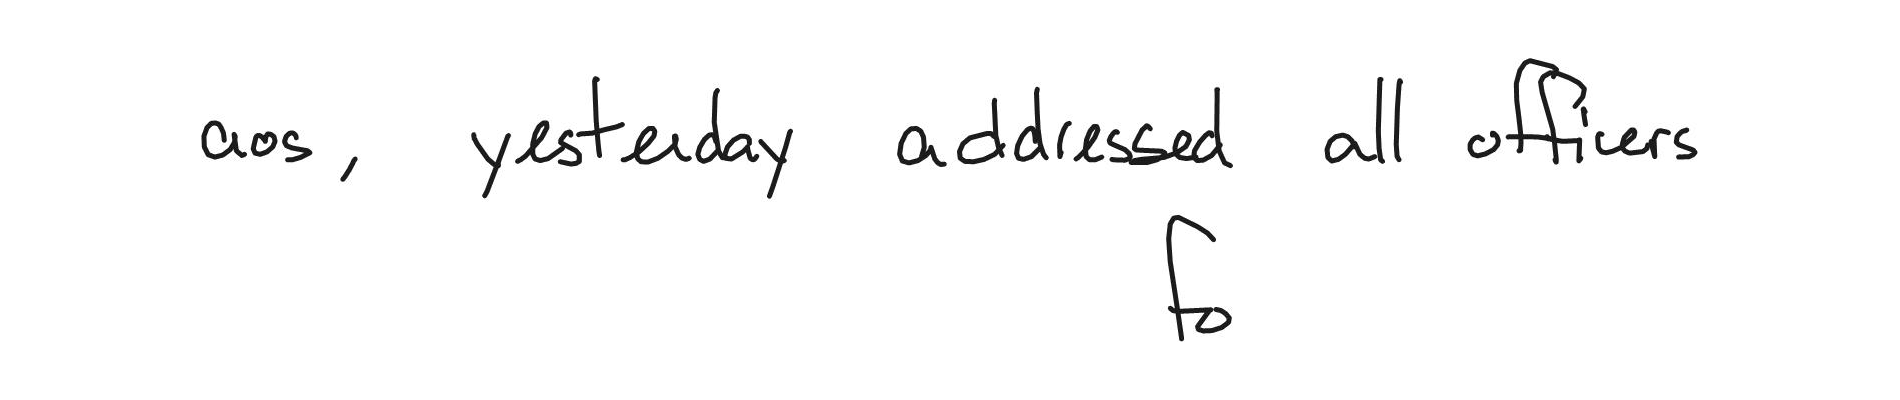 aos, yesterday addressed all officers
fo